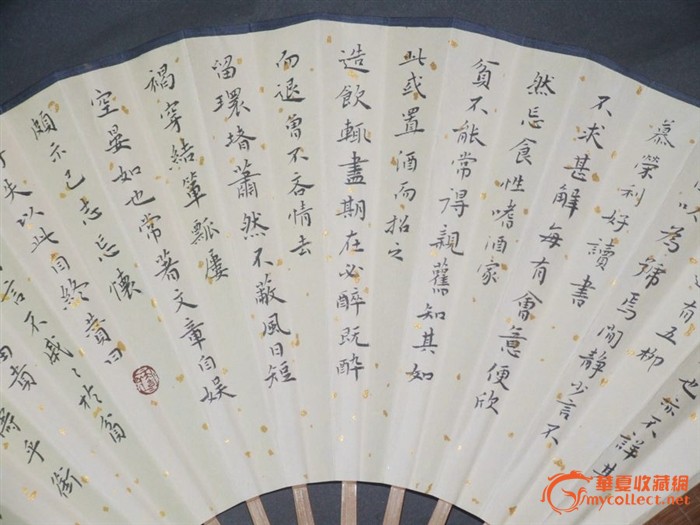 也亦不詳其
有五柳
以為號焉閒靜少言不
慕榮利好讀書
不求甚解每有會意便欣
然忘食性嗜酒家
貧不能常得親舊知其如
此或置酒而招之
造飲輒盡期在必醉既醉
而退曾不吝情去
留環堵蕭然不蔽風日短
褐穿結簞瓢屢
空晏如也常著文章自娛
頗示己志忘懷
失以此自終贊曰
言不戚〻於貧
乎銜
華夏收藏網
mycollect.net